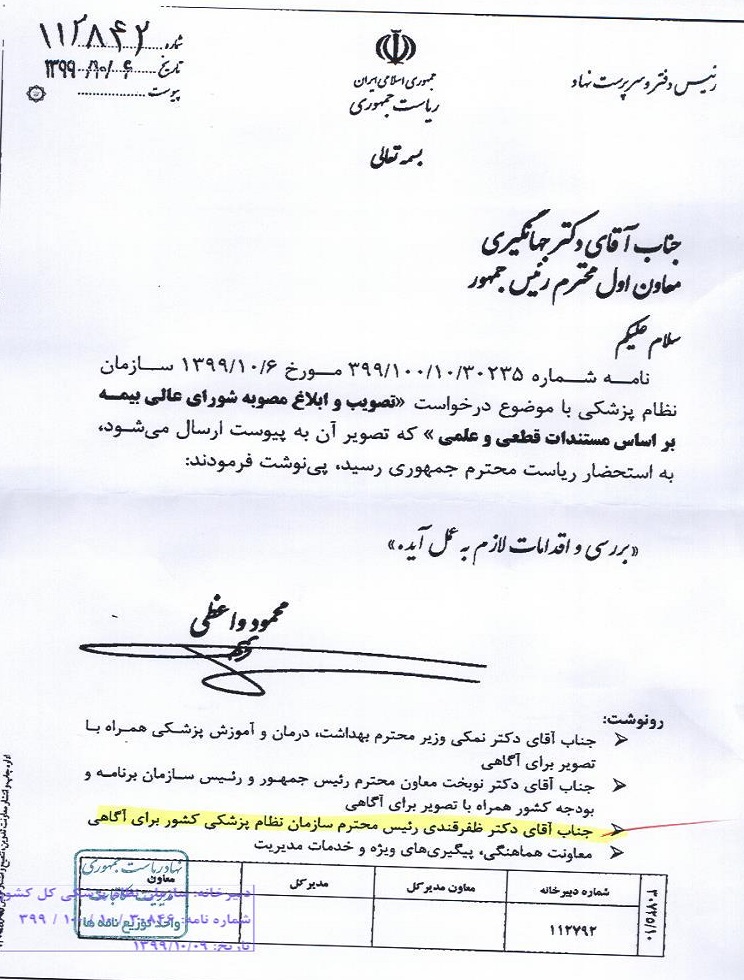 شماره ۱۱۲۸۴۲
تاریخ ۱۳۹۹/۱۰/۶
پیوست
جمهوری اسلامی ایران
ریاست جمهوری
رئیس دفتر و سرپرست نهاد
بسمه تعالی
جناب آقای دکتر جهانگیری
معاون اول محترم رئیس جمهور
سلام علیکم
نامه شماره ۳۹۹/۱۰۰/۱۰/۳۰۲۳۵ مورخ ۱۳۹۹/۱۰/۶ سازمان
نظام پزشکی با موضوع درخواست «تصویب و ابلاغ مصوبه شورای عالی بیمه
بر اساس مستندات قطعی و علمی» که تصویر آن به پیوست ارسال می‌شود،
به استحضار ریاست محترم جمهوری رسید، پی‌نوشت فرمودند:
«بررسی و اقدامات لازم به عمل آید.»
محمود واعظی
رونوشت:
جناب آقای دکتر نمکی وزیر محترم بهداشت، درمان و آموزش پزشکی همراه با
تصویر برای آگاهی
جناب آقای دکتر نوبخت معاون محترم رئیس جمهور و رئیس سازمان برنامه و
بودجه کشور همراه با تصویر برای آگاهی
جناب آقای دکتر ظفرقندی رئیس محترم سازمان نظام پزشکی کشور برای آگاهی
معاونت هماهنگی، پیگیری‌های ویژه و خدمات مدیریت
شماره دبیرخانه
معاون مدیرکل
مدیرکل
معاون
۱۱۲۷۹۲
نهاد ریاست جمهوری
واحد توزیع نامه ها
دبیرخانه: سازمان نظام پزشکی کل کشور
شماره نامه:
تاریخ: ۱۳۹۹/۱۰/۰۹